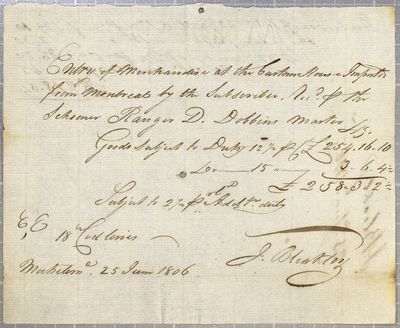 Entry of Merchandise at the Custom House Imported
from Montreal by the Subscriber, Viz. ⅌ the
Schooner Ranger D. Dobbins Master
Goods Subject to Duty 12½ ⅌ Ct £ 254.16.10
Do 15 3.6.4½
£ 258.3.2½
Subject to 2½ ⅌ Ct Addl duty
E, E
18 Cod lines
25 June 1806